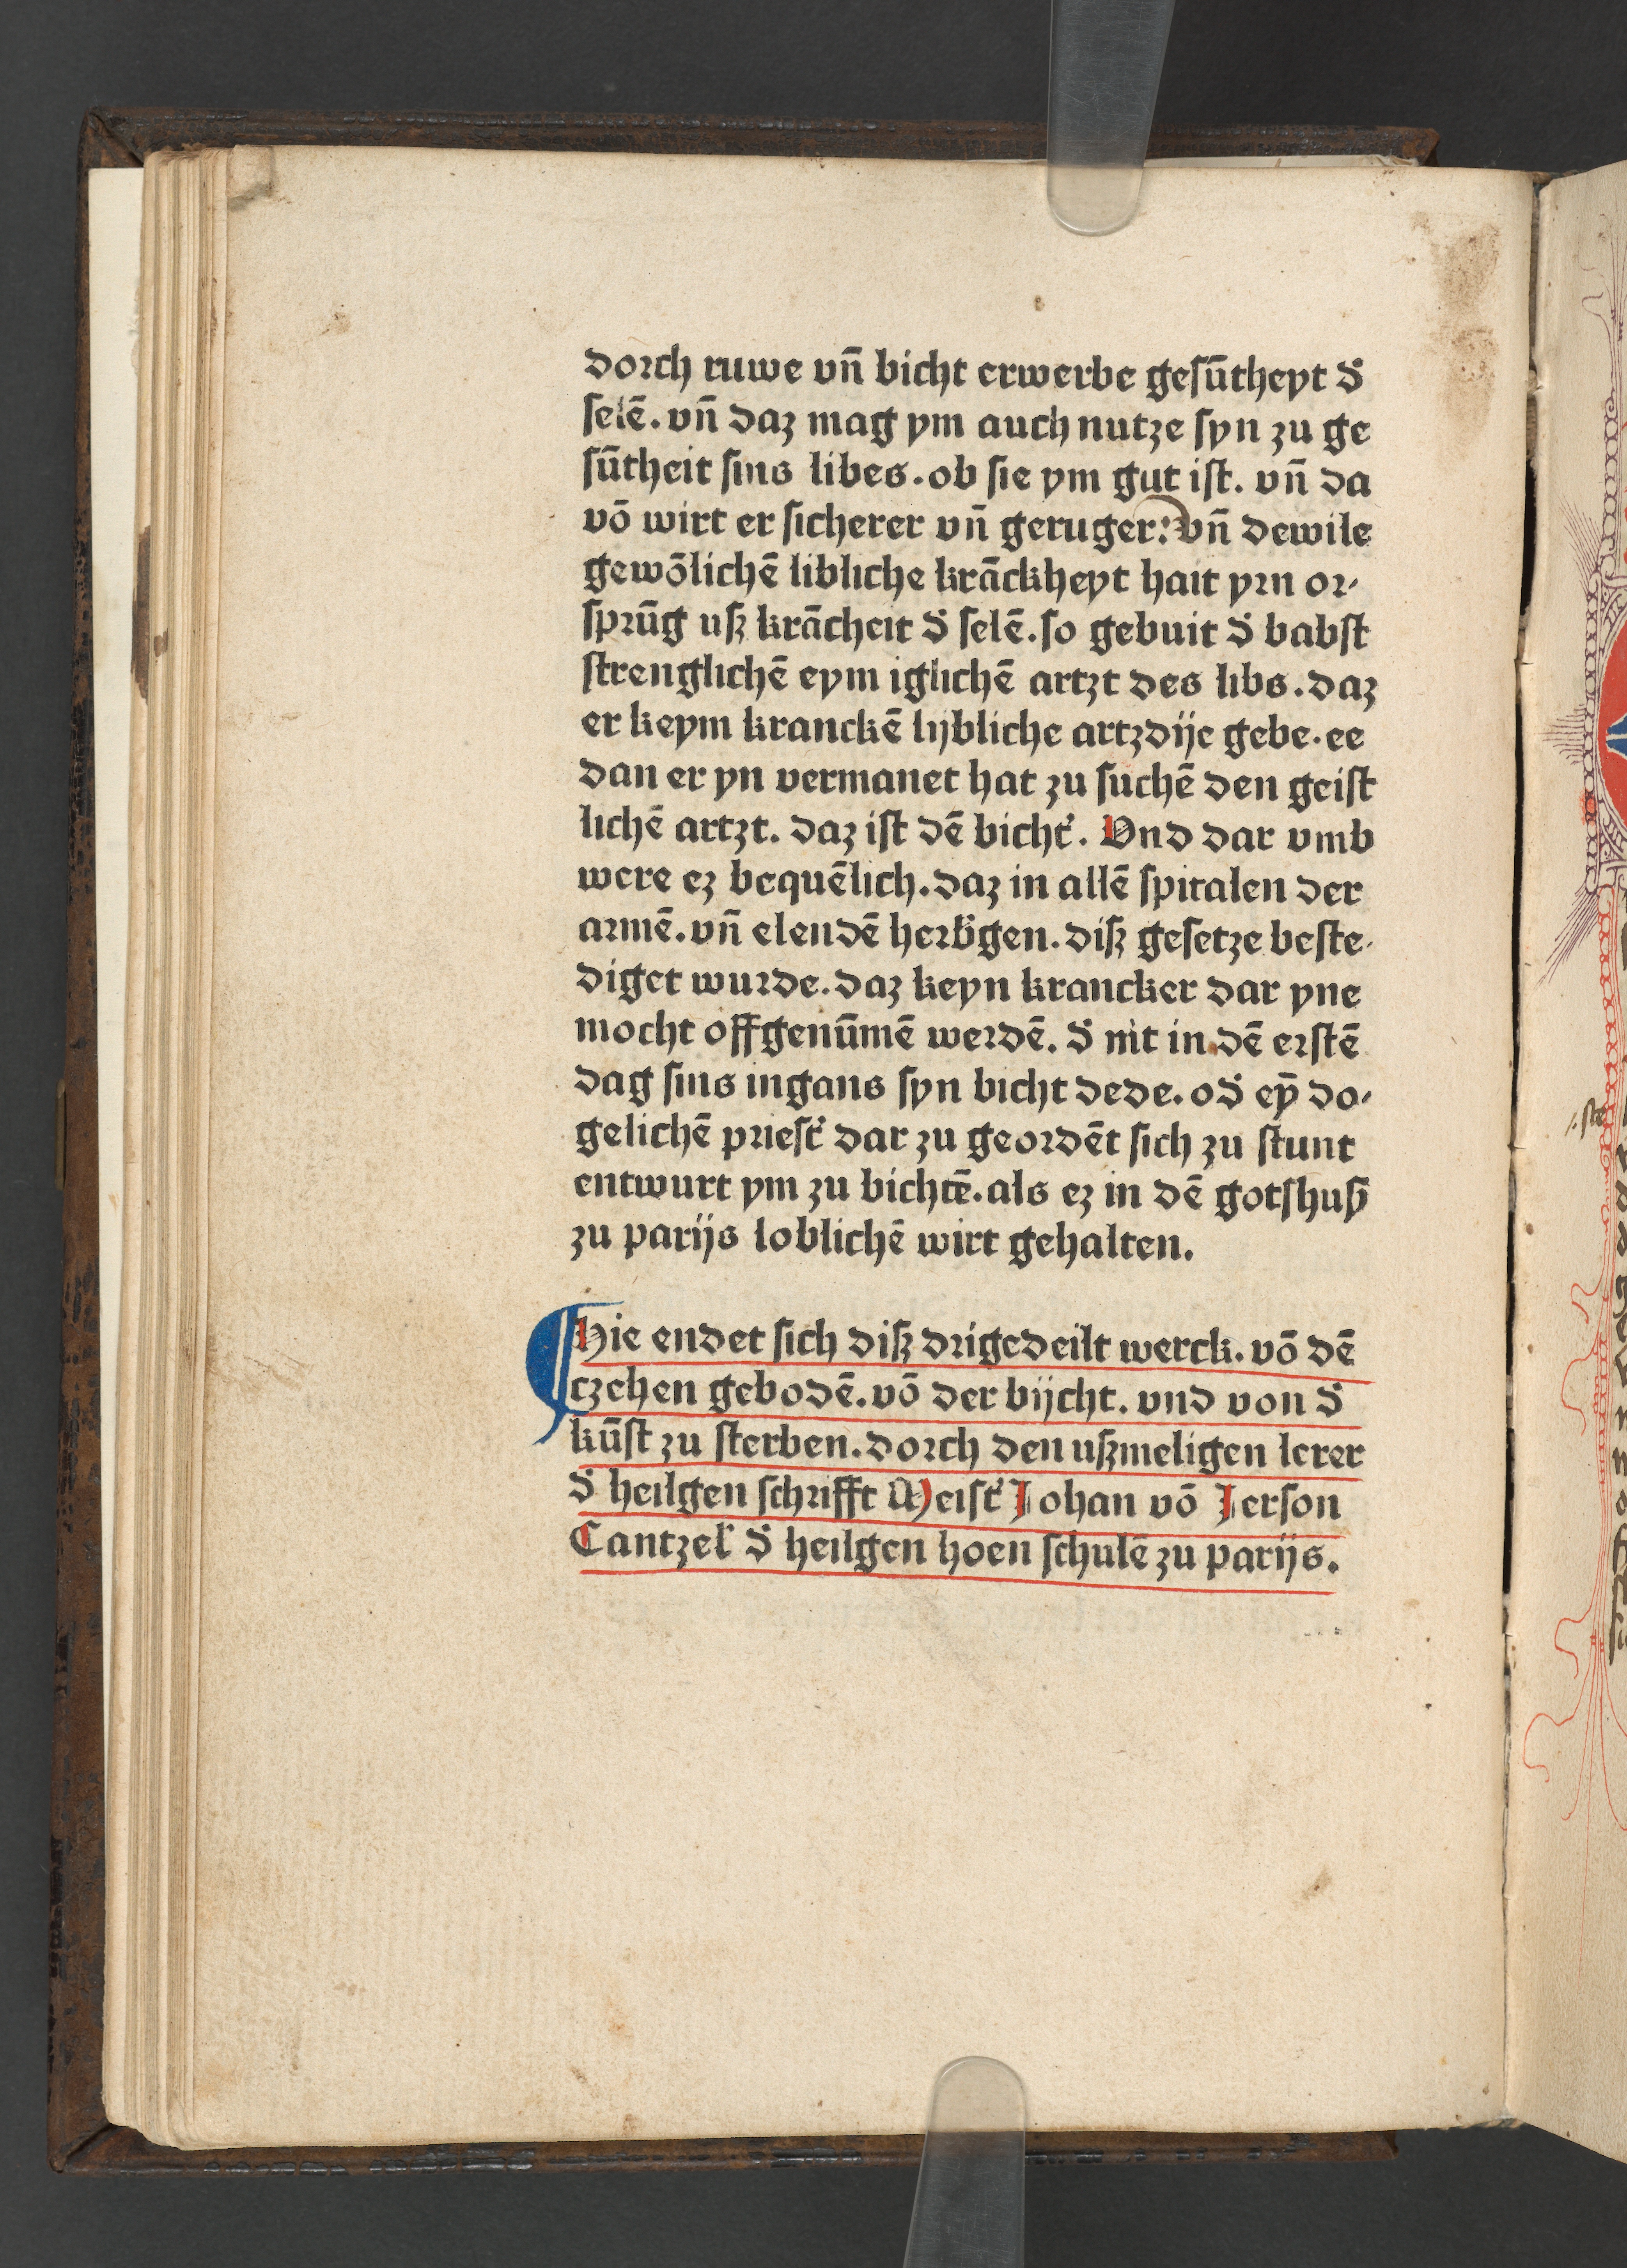 dorch ruwe vn̄ bicht erwerbe gesūtheyt d̕
selē. vn̄ daz mag ym auch nutze syn zu ge
sūtheit sins libes. ob sie ym gut ist. vn̄ da
vō wirt er sicherer vn̄ geruger: vn̄ dewile
gewōlichē libliche krāckheyt hait yrn or-
sprūg uß krācheit d̕ selē. so gebuit d̕ babst
strenglichē eym iglichē artzt des libs. daz
er keym kranckē lijbliche artzdije gebe. ee
dan er yn vermanet hat zu suchē den geist
lichē artzt. daz ist dē bicht̕. Vnd dar vmb
were ez bequēlich. daz in allē spitalen der
armē. vn̄ elendē herb̕gen. diß gesetze beste-
diget wurde. daz keyn krancker dar yne
mocht offgenūmē werdē. d̕ nit in dē erstē
dag sins ingans syn bicht dede. od̕ eȳ do-
gelichē priest̕ dar zu geordēt sich zu stunt
entwurt ym zu bichtē. als ez in dē gotshuß
zu parijs loblichē wirt gehalten.
Hie endet sich diß drigedeilt werck. vō dē
czehen gebodē. vō der bijcht. vnd von d̕
kūst zu sterben. dorch den ußmeligen lerer
d̕ heilgen schrifft Meist̕ Johan vō Jerson
Cantzel̕ d̕ heilgen hoen schulē zu parijs.